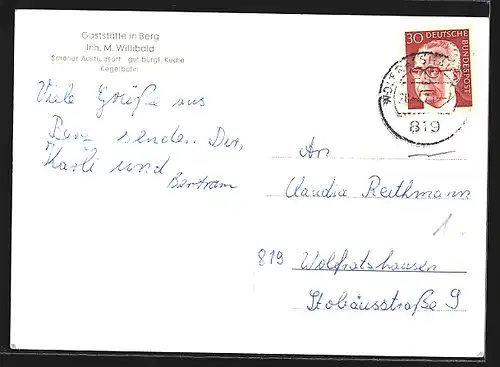 Gaststätte in Berg
Inh. M. Willibald
Schöner Ausflugsort gut bürgl. Küche
Kegelbahn
30 DEUTSCHE
BUNDESPOST
819
Viele Grüße aus
Berg senden Dir,
Karli und
Bertram
An
Claudia Reithmann
1.
819 Wolfratshausen
Stobäusstraße 9